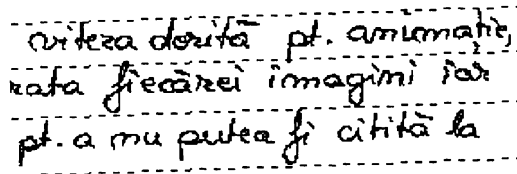 viteza dorită pt. animație,
rata fiecărei imagini iar
pt. a nu putea fi citită la